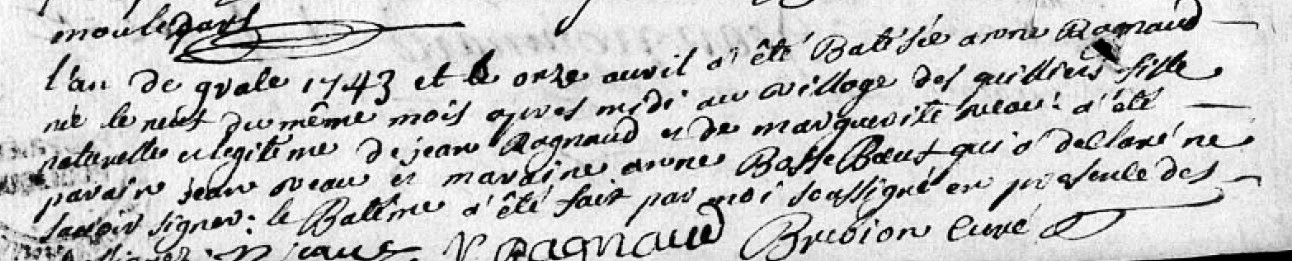 moulidars
l'an de grace 1743 et le onze avril a été Batisée anne Ragnaud
née le neuf du même mois apres midi au village des quilliers fille
naturelle et legitéme de jean Ragnaud et de marguerite veau: a été
parain jean veau et maraine anne Basse Bœuf qui a declaré ne
savoir signer: le Batême a été fait par moi soussigné en presence des
Ragnaud Brebion Curé